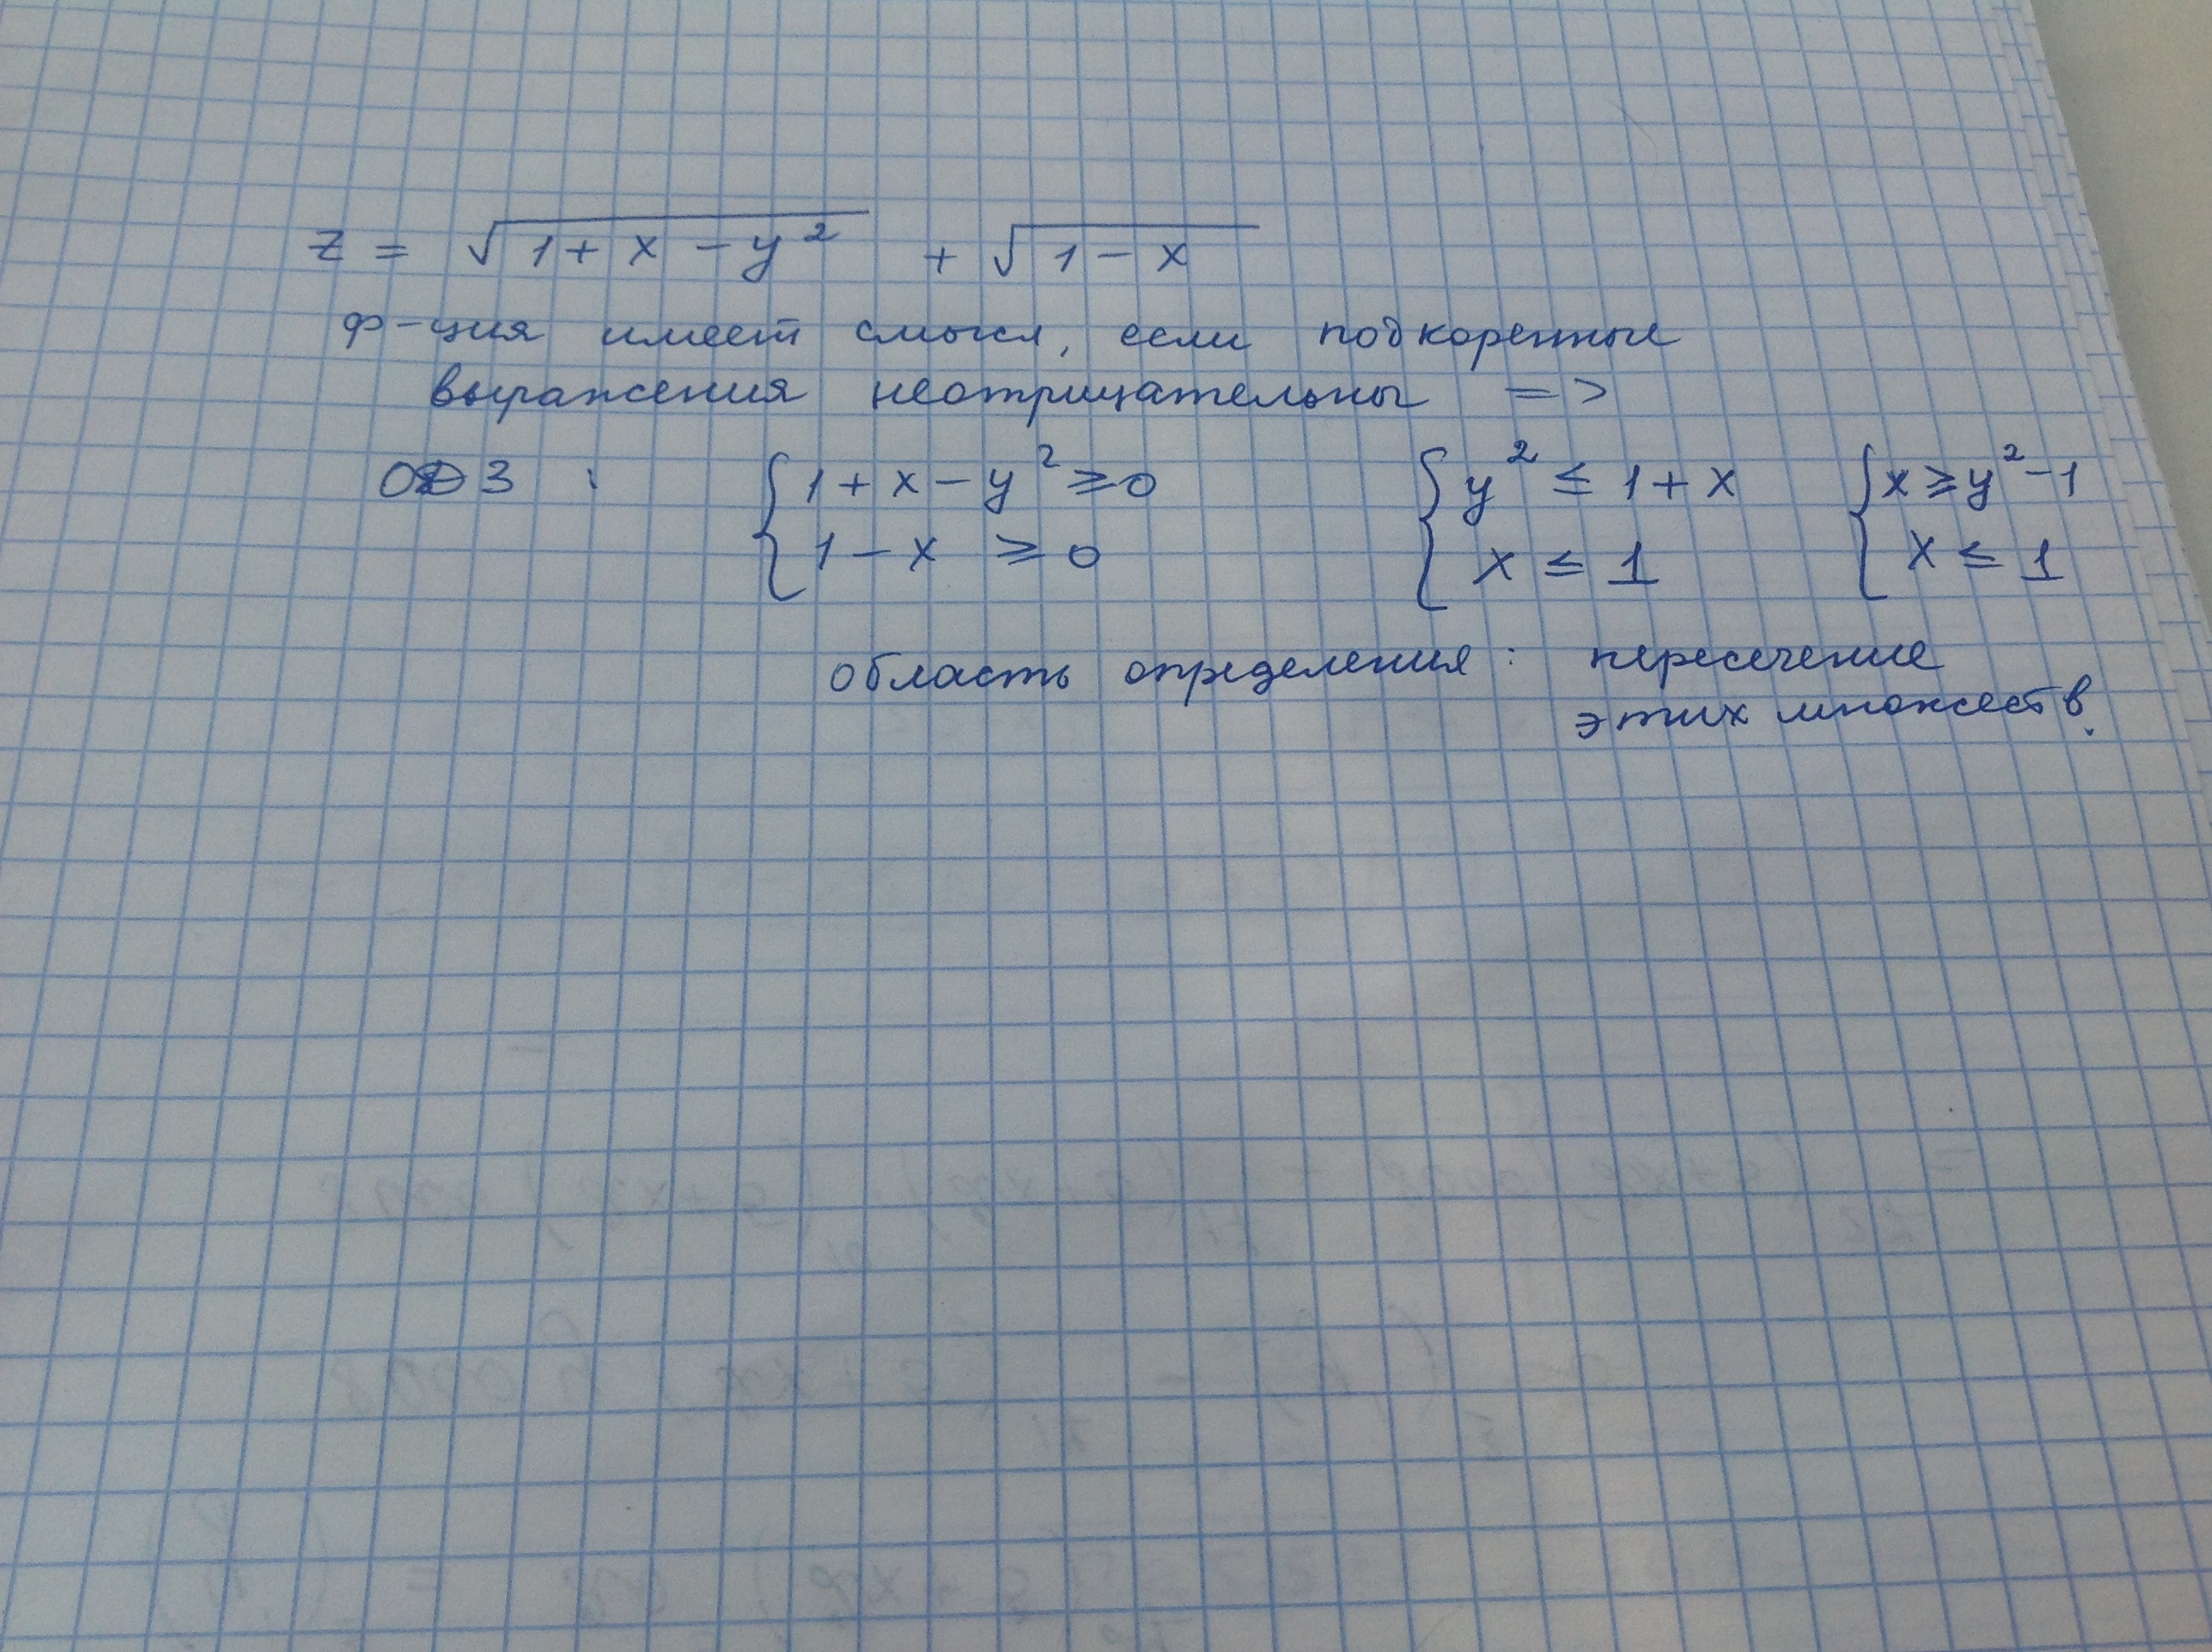 z = √(1 + x − y²) + √(1 − x)
ф-ция имеет смысл, если подкоренные
выражения неотрицательны =>
ОДЗ : { 1 + x − y² ≥ 0 { y² ≤ 1 + x { x ≥ y² − 1
1 − x ≥ 0 x ≤ 1 x ≤ 1
область определения : пересечение
этих множеств.